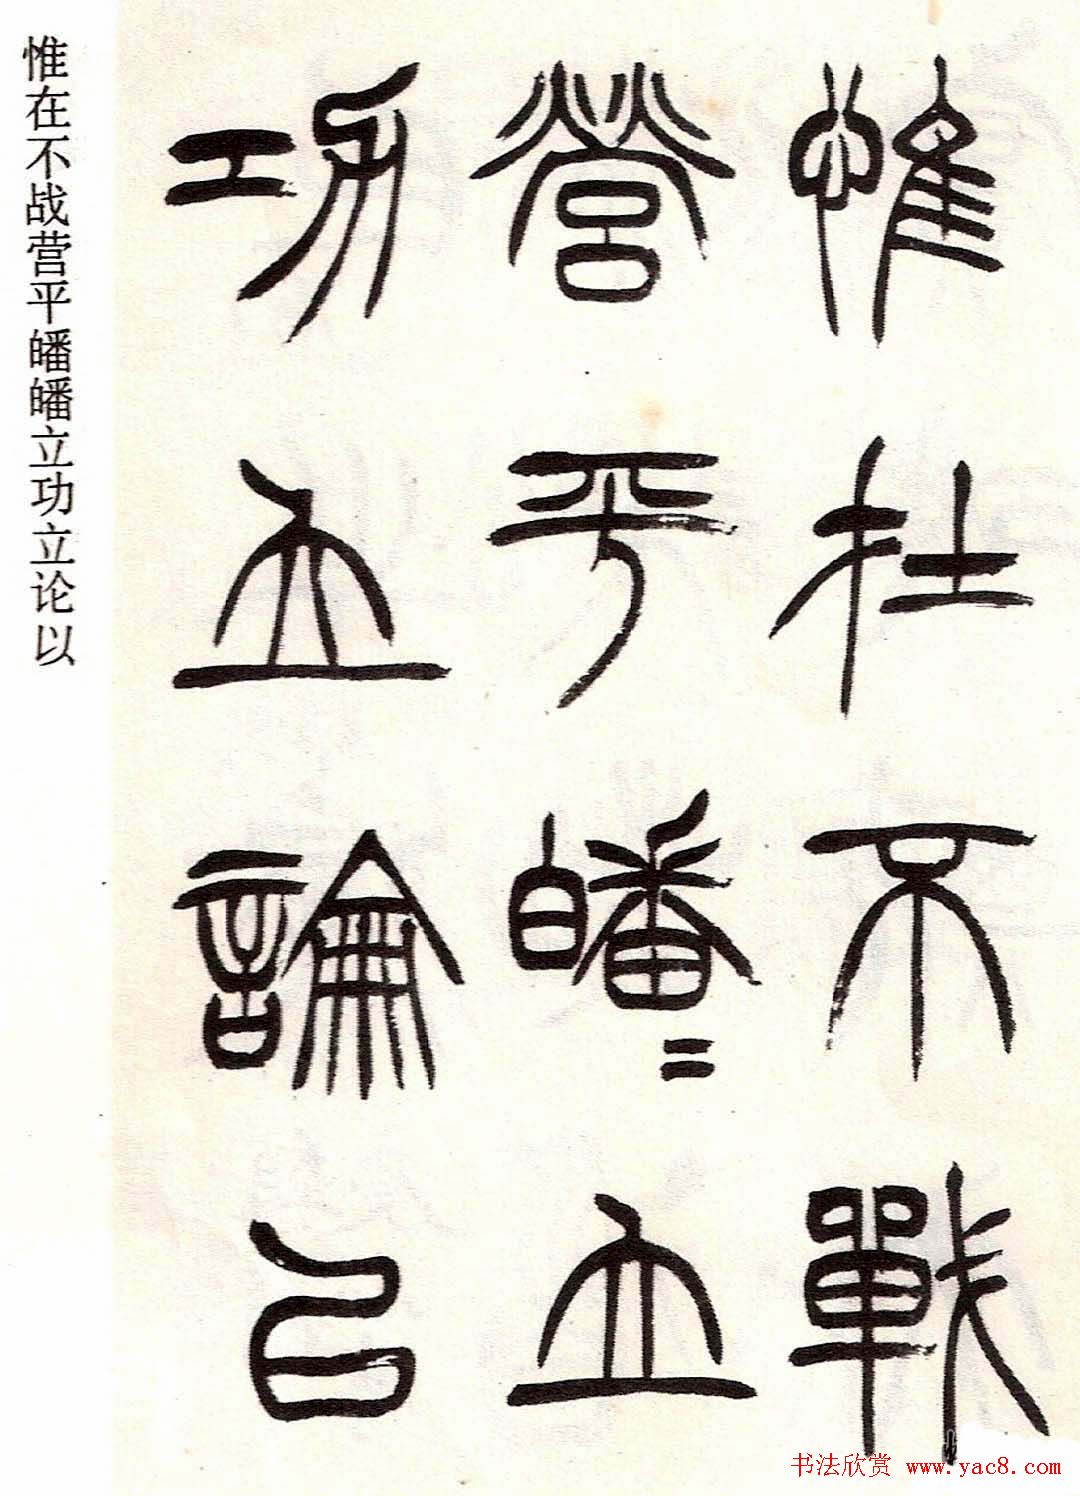 惟在不戰
營平皤〻立
功立論㠯
惟在不战营平皤皤立功立论以
书法欣赏 www.yac8.com